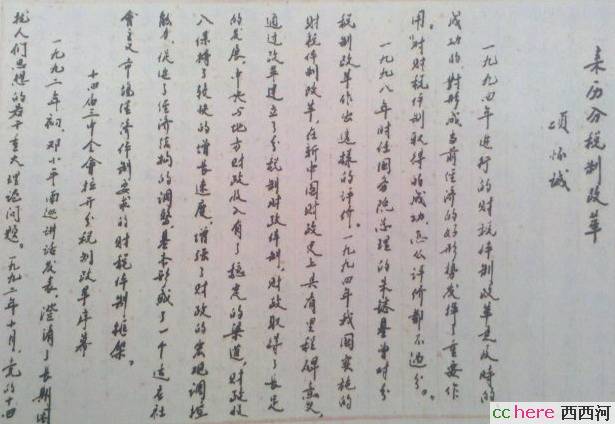 亲历分税制改革
项怀诚
一九九四年进行的财税体制改革是及时的
成功的,对形成当前经济的好形势发挥了重要作
用。“对财税体制取得的成功,怎么评价都不过分”。
一九九八年时任国务院总理的朱镕基曾对分
税制改革作出这样的评价。一九九四年我国实施的
财税体制改革,在新中国财政史上具有里程碑意义,
通过改革建立了分税制财政体制,财政取得了长足
的发展,中央与地方财政收入有了稳定的渠道,财政收
入保持了较快的增长速度,增强了财政的宏观调控
能力,促进了经济结构的调整,基本形成了一个适应社
會主义市场经济体制要求的财税体制框架。
十四届三中全會拉开分税制改革序幕
一九九二年初,邓小平南巡讲话发表,澄清了长期困
扰人们思想的若干重大理论问题。一九九二年十月,党的十四
cchere 西西河